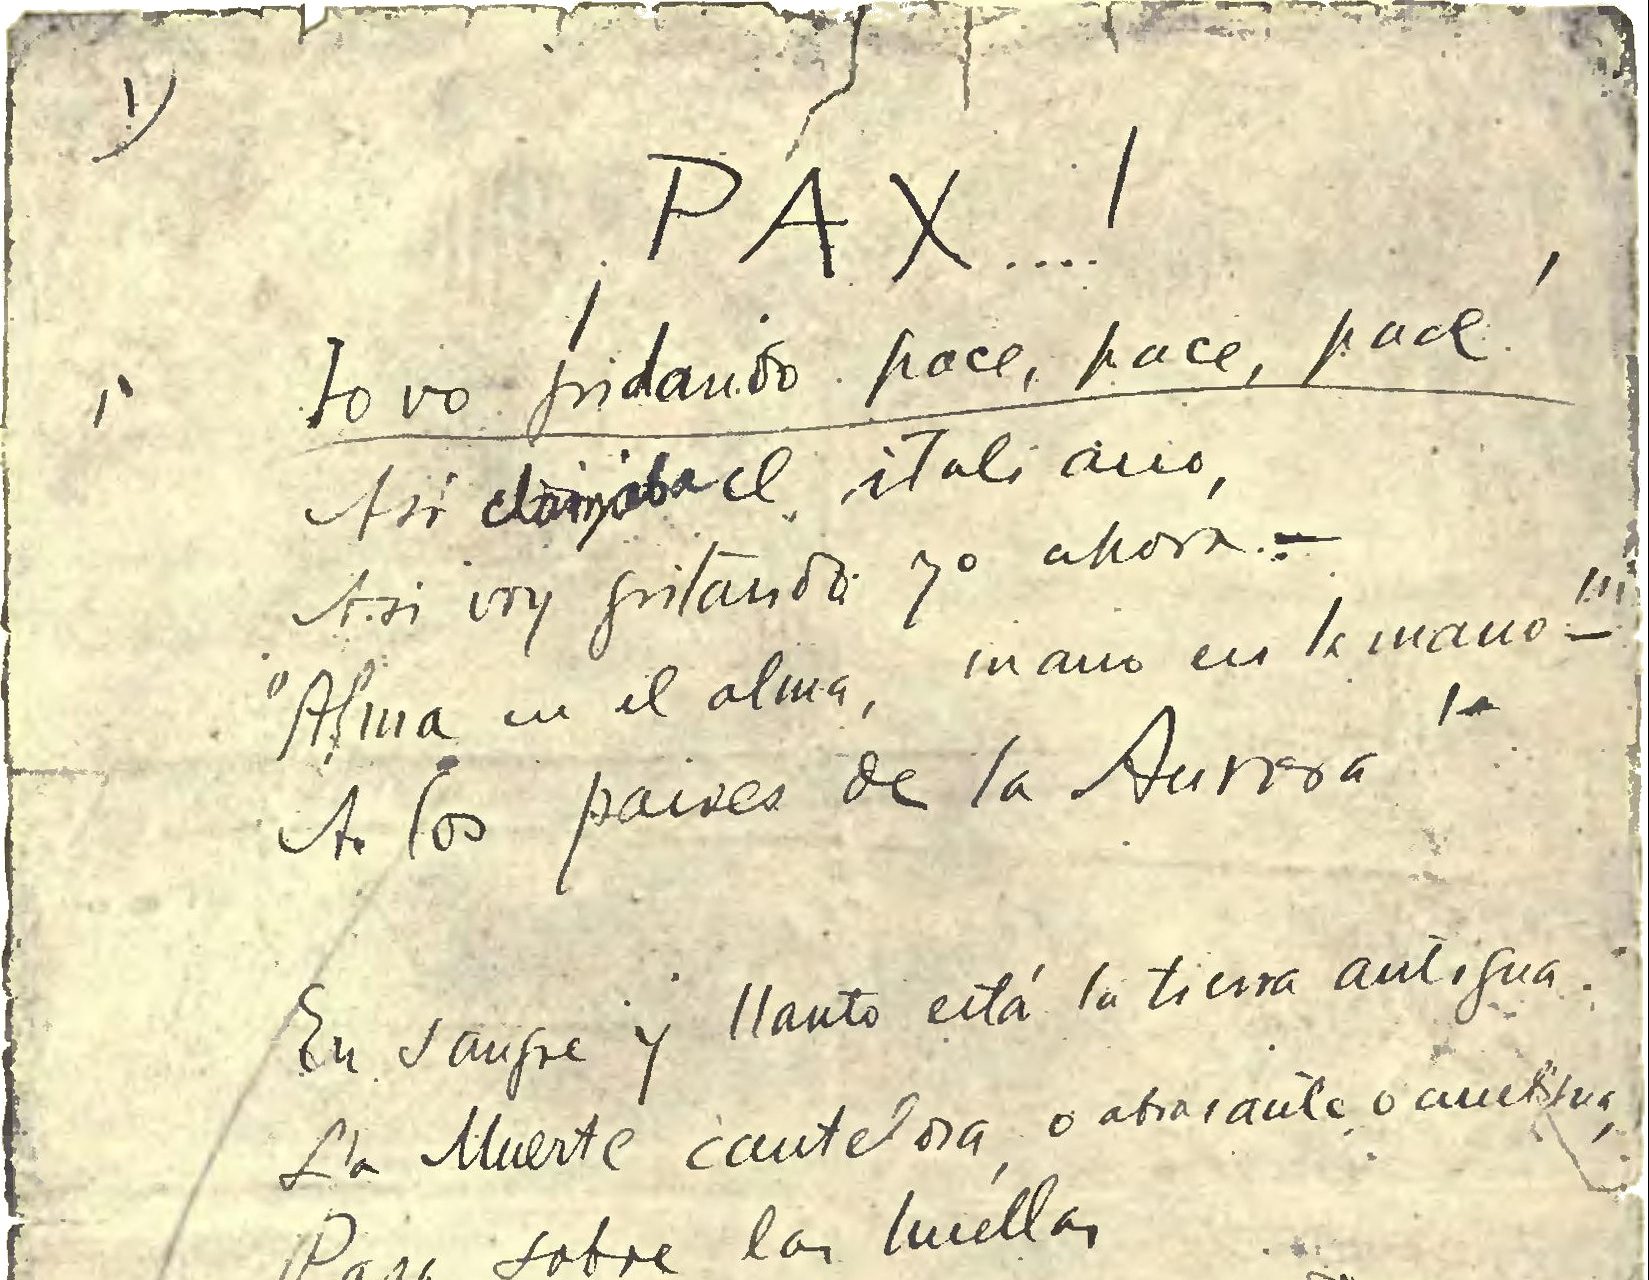 1)
¡PAX....!
Io vo gridando pace, pace, pace!
Así clamaba el italiano,
Asi voy gritando yo ahora.—
"Alma en el alma, mano en la mano—"
A los paises de la Aurora
En sangre y llanto está la tierra antigua.
La Muerte cautelosa, o abrasante, o ambigua,
Pasa sobre las huellas